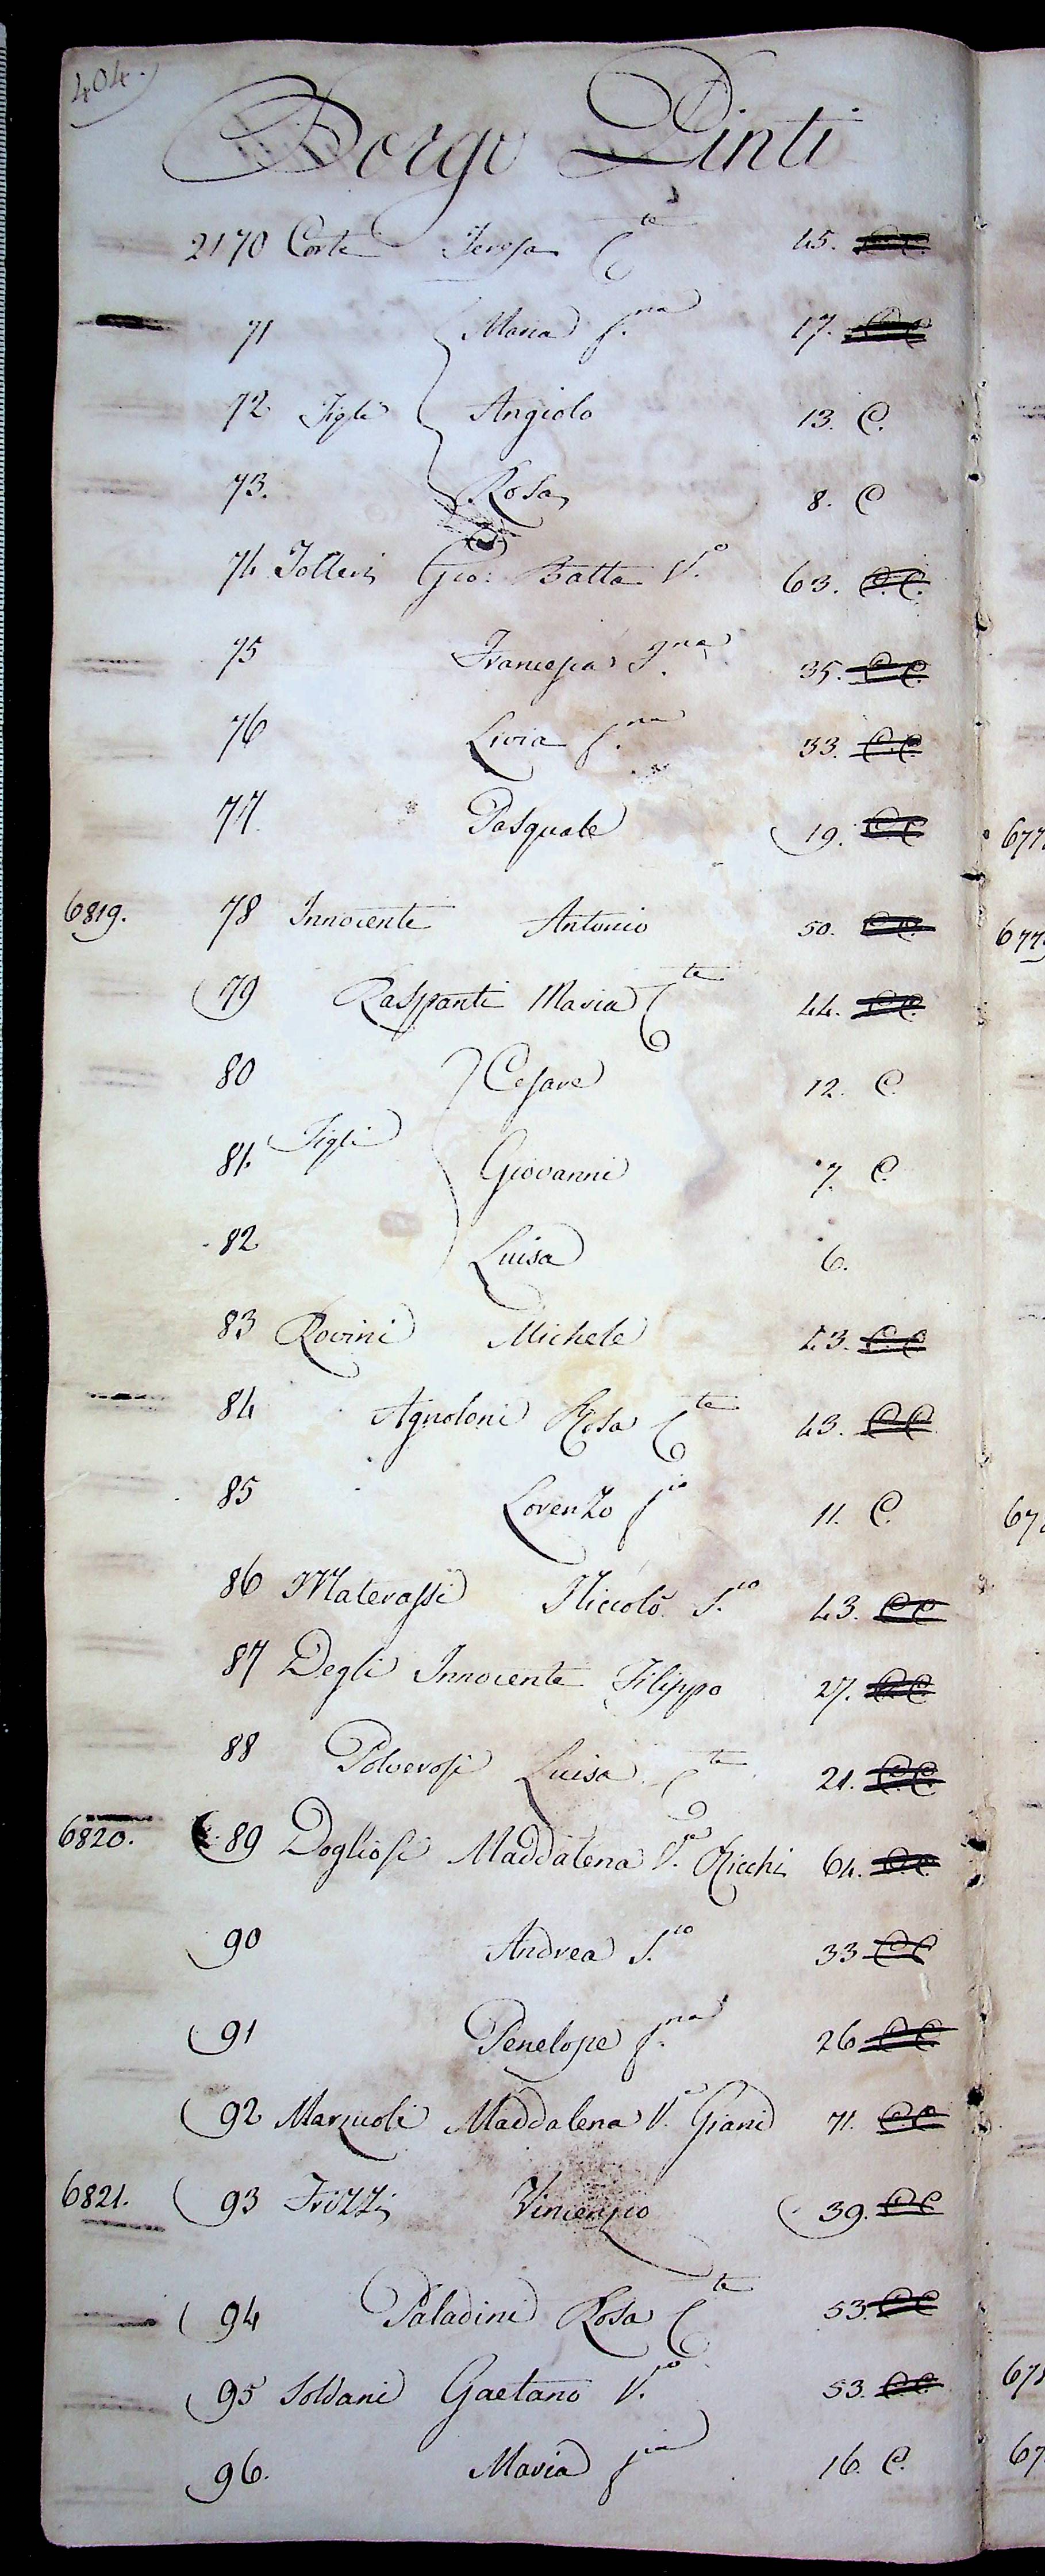 404.
Borgo Pinti
2170 Corte Teresa C.te 45. C.C.
71 Maria f.na 17. C.C.
72 Figli Angiolo 13. C.
73. Rosa 8. C
74 Gio: Batta V.o 63. C.C.
75 Francesca F.na 35. C.C.
76 Livia f.na 33. C.C.
77. Pasquale 19. C.C
6819. 78 Innocente Antonio 50. C.C.
79 Raspanti Maria C.te 44. C.C.
80 Cesare 12. C.
81. Figli Giovanni 7. C.
82 Luisa 6.
83 Rovini Michele 43. C.C
84 Agnoloni Rosa C.te 43. C.C.
85 Lorenzo f.io 11. C.
86 Materassi Niccolò S.io 43. C.C
87 Degli Innocente Filippo 27. C.C.
88 Polverosi Luisa C.te 21. C.C.
6820. 89 Dogliosi Maddalena V.a Ricchi 64. C.C.
90 Andrea S.io 33 C.C
91 Penelope f.na 26 C.C.
92 Marzuoli Maddalena V.a Giani 71. C.C.
6821. 93 Frizzi Vincenzio 39. C.C
94 Paladini Rosa C.te 53. C.C
95 Soldani Gaetano V.o 53. C.C.
96. Maria f.ia 16. C.